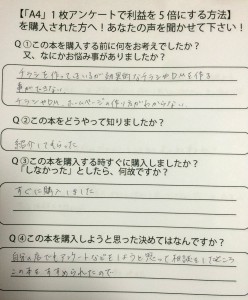 【「A4」1枚アンケートで利益を5倍にする方法】
を購入された方へ!あなたの声を聞かせて下さい!
Q①この本を購入する前に何をお考えでしたか?
又、なにかお悩み事がありましたか?
チラシを作ってはいるが効果的なチラシやDMを作る
事ができない
チラシやDM、ホームページの作り方がわからない
Q②この本をどうやって知りましたか?
紹介してもらった
Q③この本を購入する時すぐに購入しましたか?
「しなかった」としたら、何故ですか?
すぐに購入しました
Q④この本を購入しようと思った決めてはなんですか?
自分の店でもアンケートなどをしようと思って相談をしたところ
この本をすすめられたので